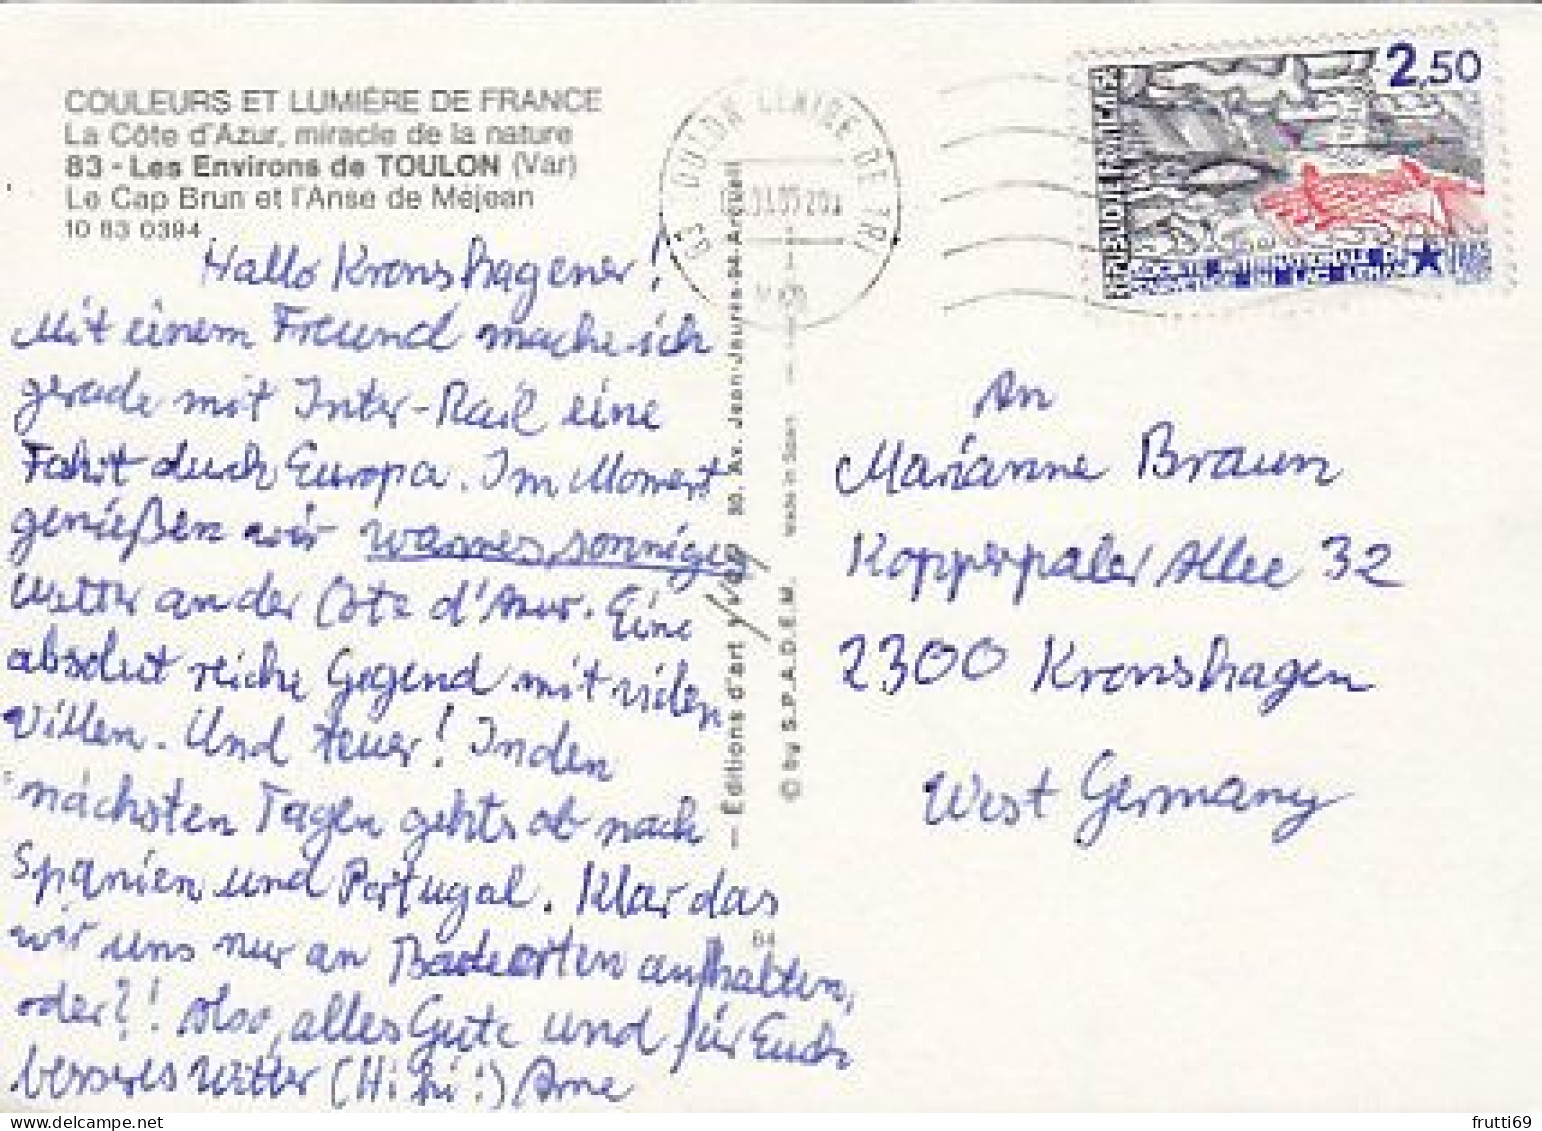 COULEURS ET LUMIÈRE DE FRANCE
La Côte d'Azur, miracle de la nature
83 - Les Environs de TOULON (Var)
Le Cap Brun et l'Anse de Méjean
10 83 0394
Hallo Kronshagener!
Mit einem Freund mache ich
gerade mit Inter-Rail eine
Fahrt durch Europa. Im Moment
genießen wir warmes, sonniges
Wetter an der Côte d'Azur. Eine
absolut reiche Gegend mit vielen
Villen. Und teuer! In den
nächsten Tagen gehts ab nach
Spanien und Portugal. Klar das
wir uns nur an Badeorten aufhalten,
oder?! Also, alles Gute und für Euch
besseres Wetter (Hi hi!) Arne
— Éditions d'art 30, Av. Jean-Jaurès-94-Arcueil
© by S.P.A.D.E.M. — Made in Spain
84
2,50
An
Marianne Braun
Kopperpaler Allee 32
2300 Kronshagen
West Germany
frutti69